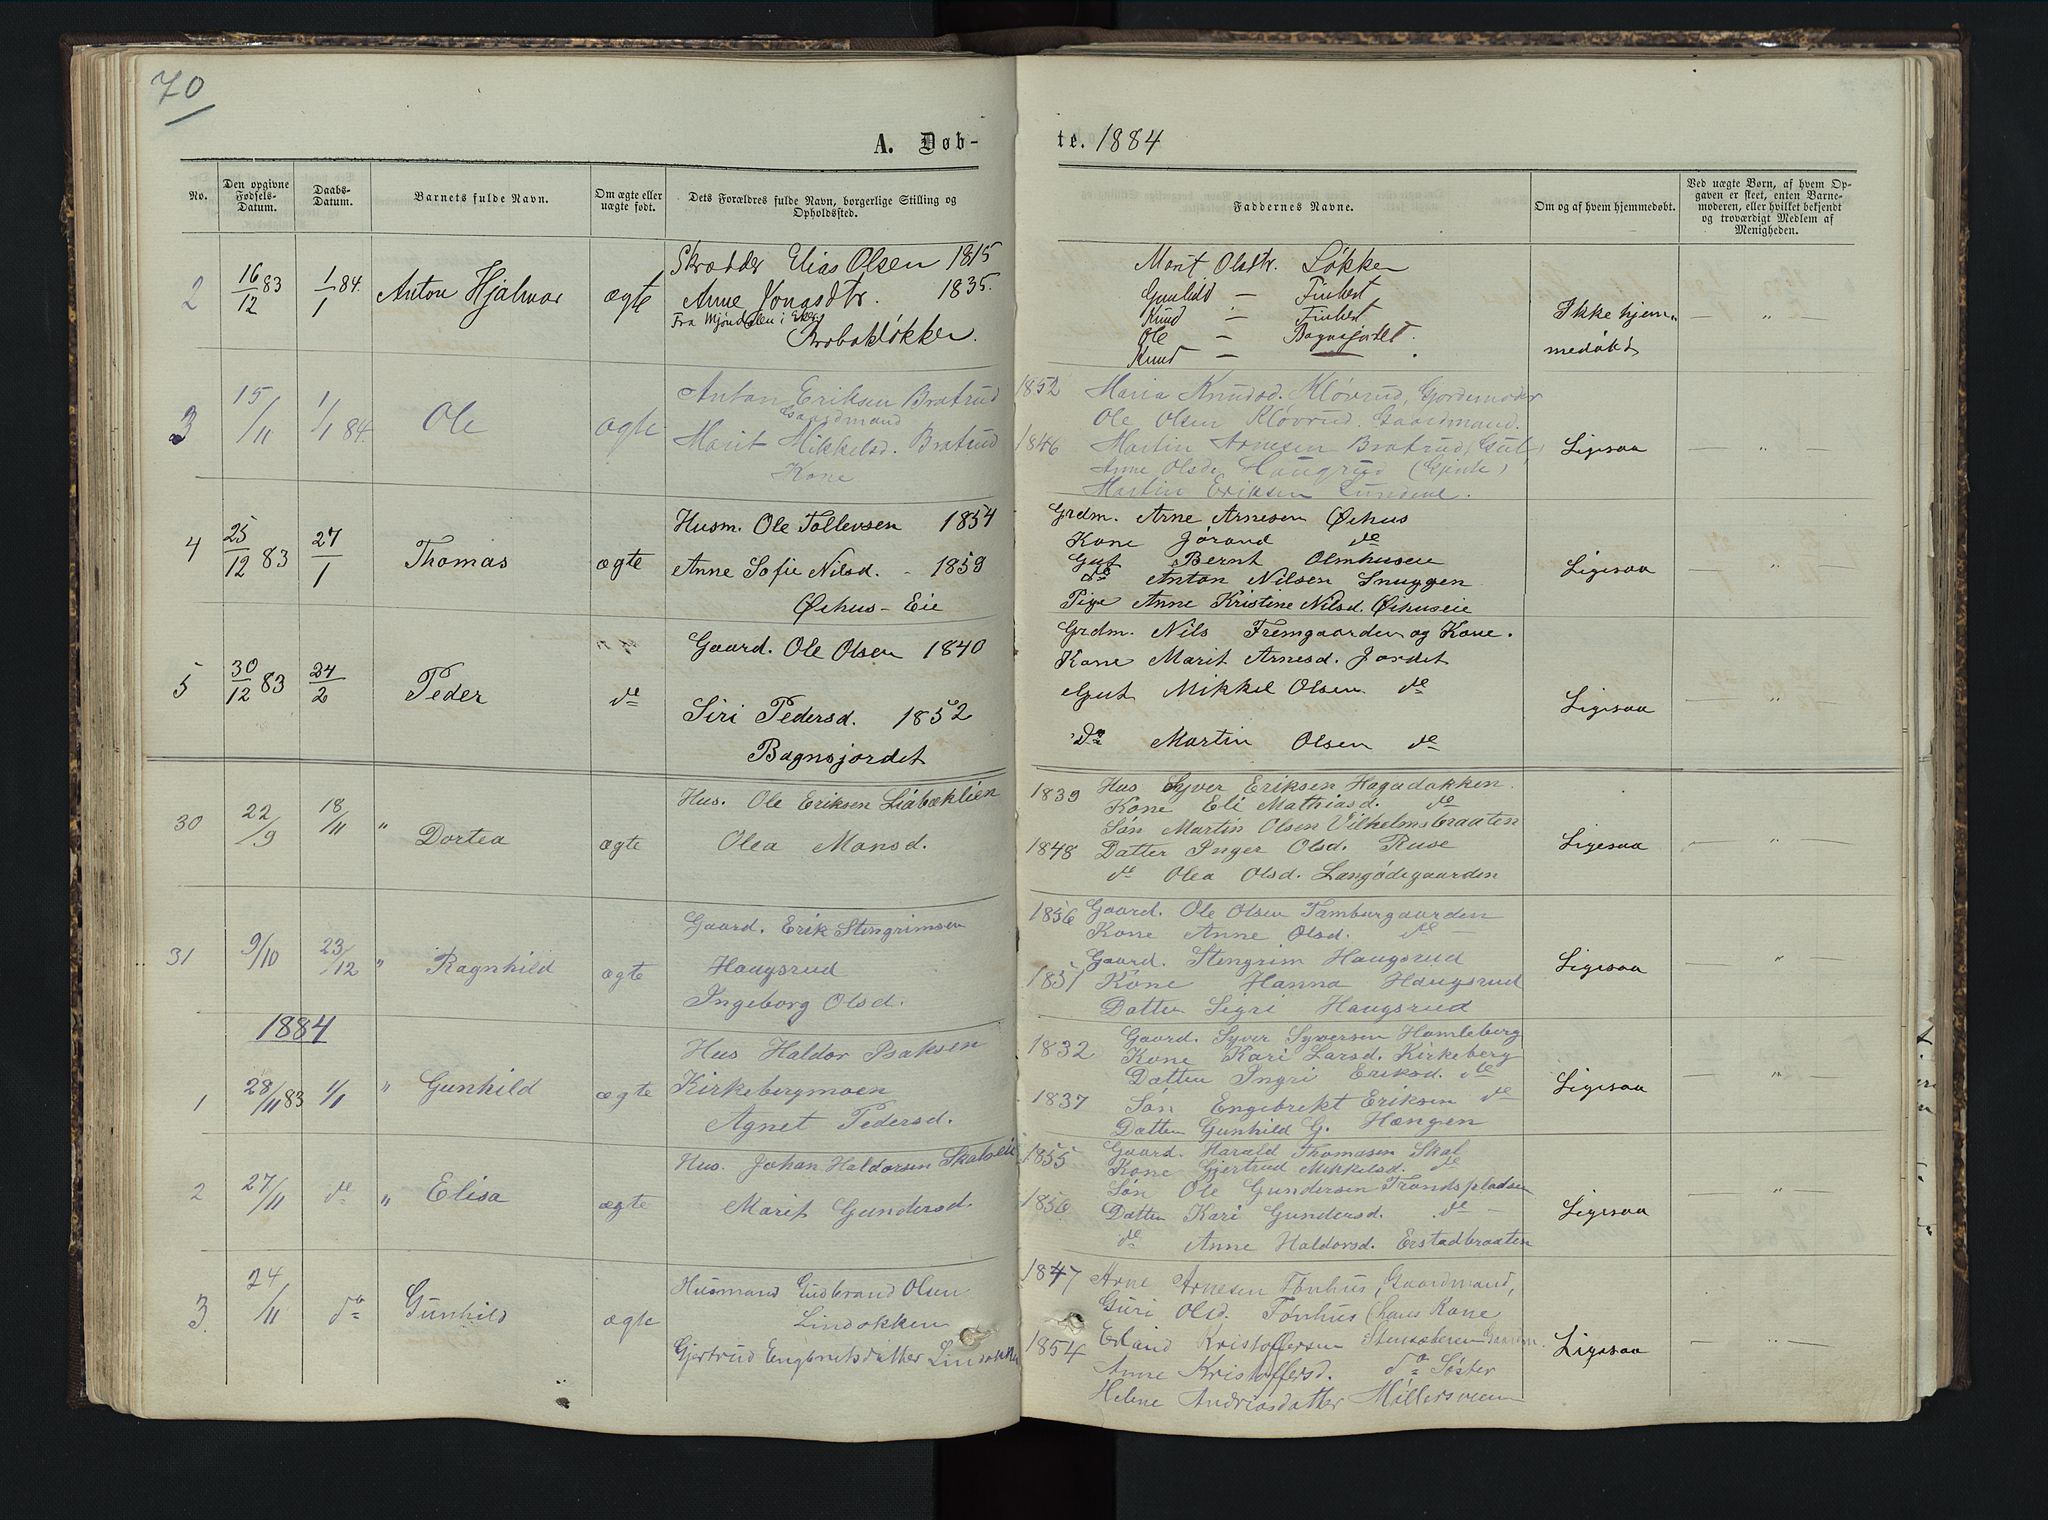 70
A. Døb-
te. 1884
No.
Den opgivne Fødsels-Datum.
Daabs-Datum.
Barnets fulde Navn.
Om ægte eller uægte født.
Dets Forældres fulde Navn, borgerlige Stilling og Opholdssted.
Faddernes Navne.
Om og af hvem hjemmedøbt.
Ved uægte Børn, af hvem Opgaven er skeet, enten Barnemoderen, eller hvilket bekjendt og troværdigt Medlem af Menigheden.
2
16/12 83
1/1 84.
Anton Hjalmar
ægte
Skrædder Elias Olsen 1815
Anne 1835.
Fra Mjøndalen i Eker
Marit Olsdtr. Løkken
Gunhild —
Knud —
Ole — Bagnsjordet.
Knud —
Ikke hjem-
medøbt
— " —
3
15/11
1/1 84.
Ole
ægte
Anton Eriksen Bratrud
Gaardmand
Marit Mikkelsd. Bratrud
Kone
1852
1846
Maria Knudsd. Kløvrud, Gordemoder
Ole Olsen Kløvrud. Gaardmand.
Martin Arnesen Bratrud, (Gut)
Anne Olsd. Haugrud
Martin Eriksen
Ligesaa
— " —
4
25/12 83
27/1
Thomas
ægte
Husm. Ole Tollevsen 1854
Anne Sofie Nilsd. - 1859
Øihus-Eie
Grdm. Arne Arnesen Øihus
Kone Jørand de
Gut Bernt Olmhuseie
de Anton Nilsen Snuggen
Pige Anne Kristine Nilsd. Øihuseie
Ligesaa
— " —
5
30/12 83
24/2
Peder
de
Gaard. Ole Olsen 1840
Siri Pedersd. 1852
Bagnsjordet
Grdm. Nils Fremgaarden og Kone.
Kone Marit Arnesd. Jordet
Gut Mikkel Olsen de
do Martin Olsen de
Ligesaa
— " —
30
22/9
18/11
" Dortea
ægte
Hus. Ole Eriksen Liabæklien
Olea Monsd.
1839
1848
Hus Syver Eriksen Hagabakken.
Kone Eli Mathiasd. de
Søn Martin Olsen Vilhelmsbraaten
Datter Inger Olsd. Ruse
de Olea Olsd. Langødegaarden
Ligesaa
— " —
31
9/10
23/12
" Ragnhild
ægte
Gaard. Erik Stengrimsen
Haugsrud
Ingeborg Olsd.
1856
1851
Gaard. Ole Olsen Tamburgaarden
Kone Anne Olsd. de
Gaard. Stengrim Haugsrud
Kone Hanna Haugsrud
Datter Sigri Haugsrud
Ligesaa
— " —
1884
1
28/11 83
1/1
" Gunhild
ægte
Hus Haldor Isaksen
Kirkebergmoen
Agnet Pedersd.
1832
1837
Gaard. Syver Syversen Hamleberg
Kone Kari Larsd. Kirkeberg
Datter Ingri Eriksd. de
Søn Engebrekt Eriksen de
Datter Gunhild G. Hængen
Ligesaa
— " —
2
27/11
de
" Elisa
ægte
Hus. Johan Haldorsen Skalseie
Marit Gundersd.
1855
1856
Gaard. Harald Thomasen Skal
Kone Gjertrud Mikkelsd. de
Søn Ole Gundersen Trondspladsen
Datter Kari Gundersd. de
de Anne Haldorsd. Erstadbraaten
Ligesaa
— " —
3
24/11
do
Gunhild
ægte
Husmand Gudbrand Olsen
Lindokken
Gjertrud Engebretsdatter Lindokken
1847
1854
Arne Arnesen Tønhus, Gaardmand,
Guri Olsd. Tønhus (hans Kone
Erland Kristoffersen
Anne Kristoffersd. do Søster
Helene Andriasdatter Møllersveen
Ligesaa
— " —